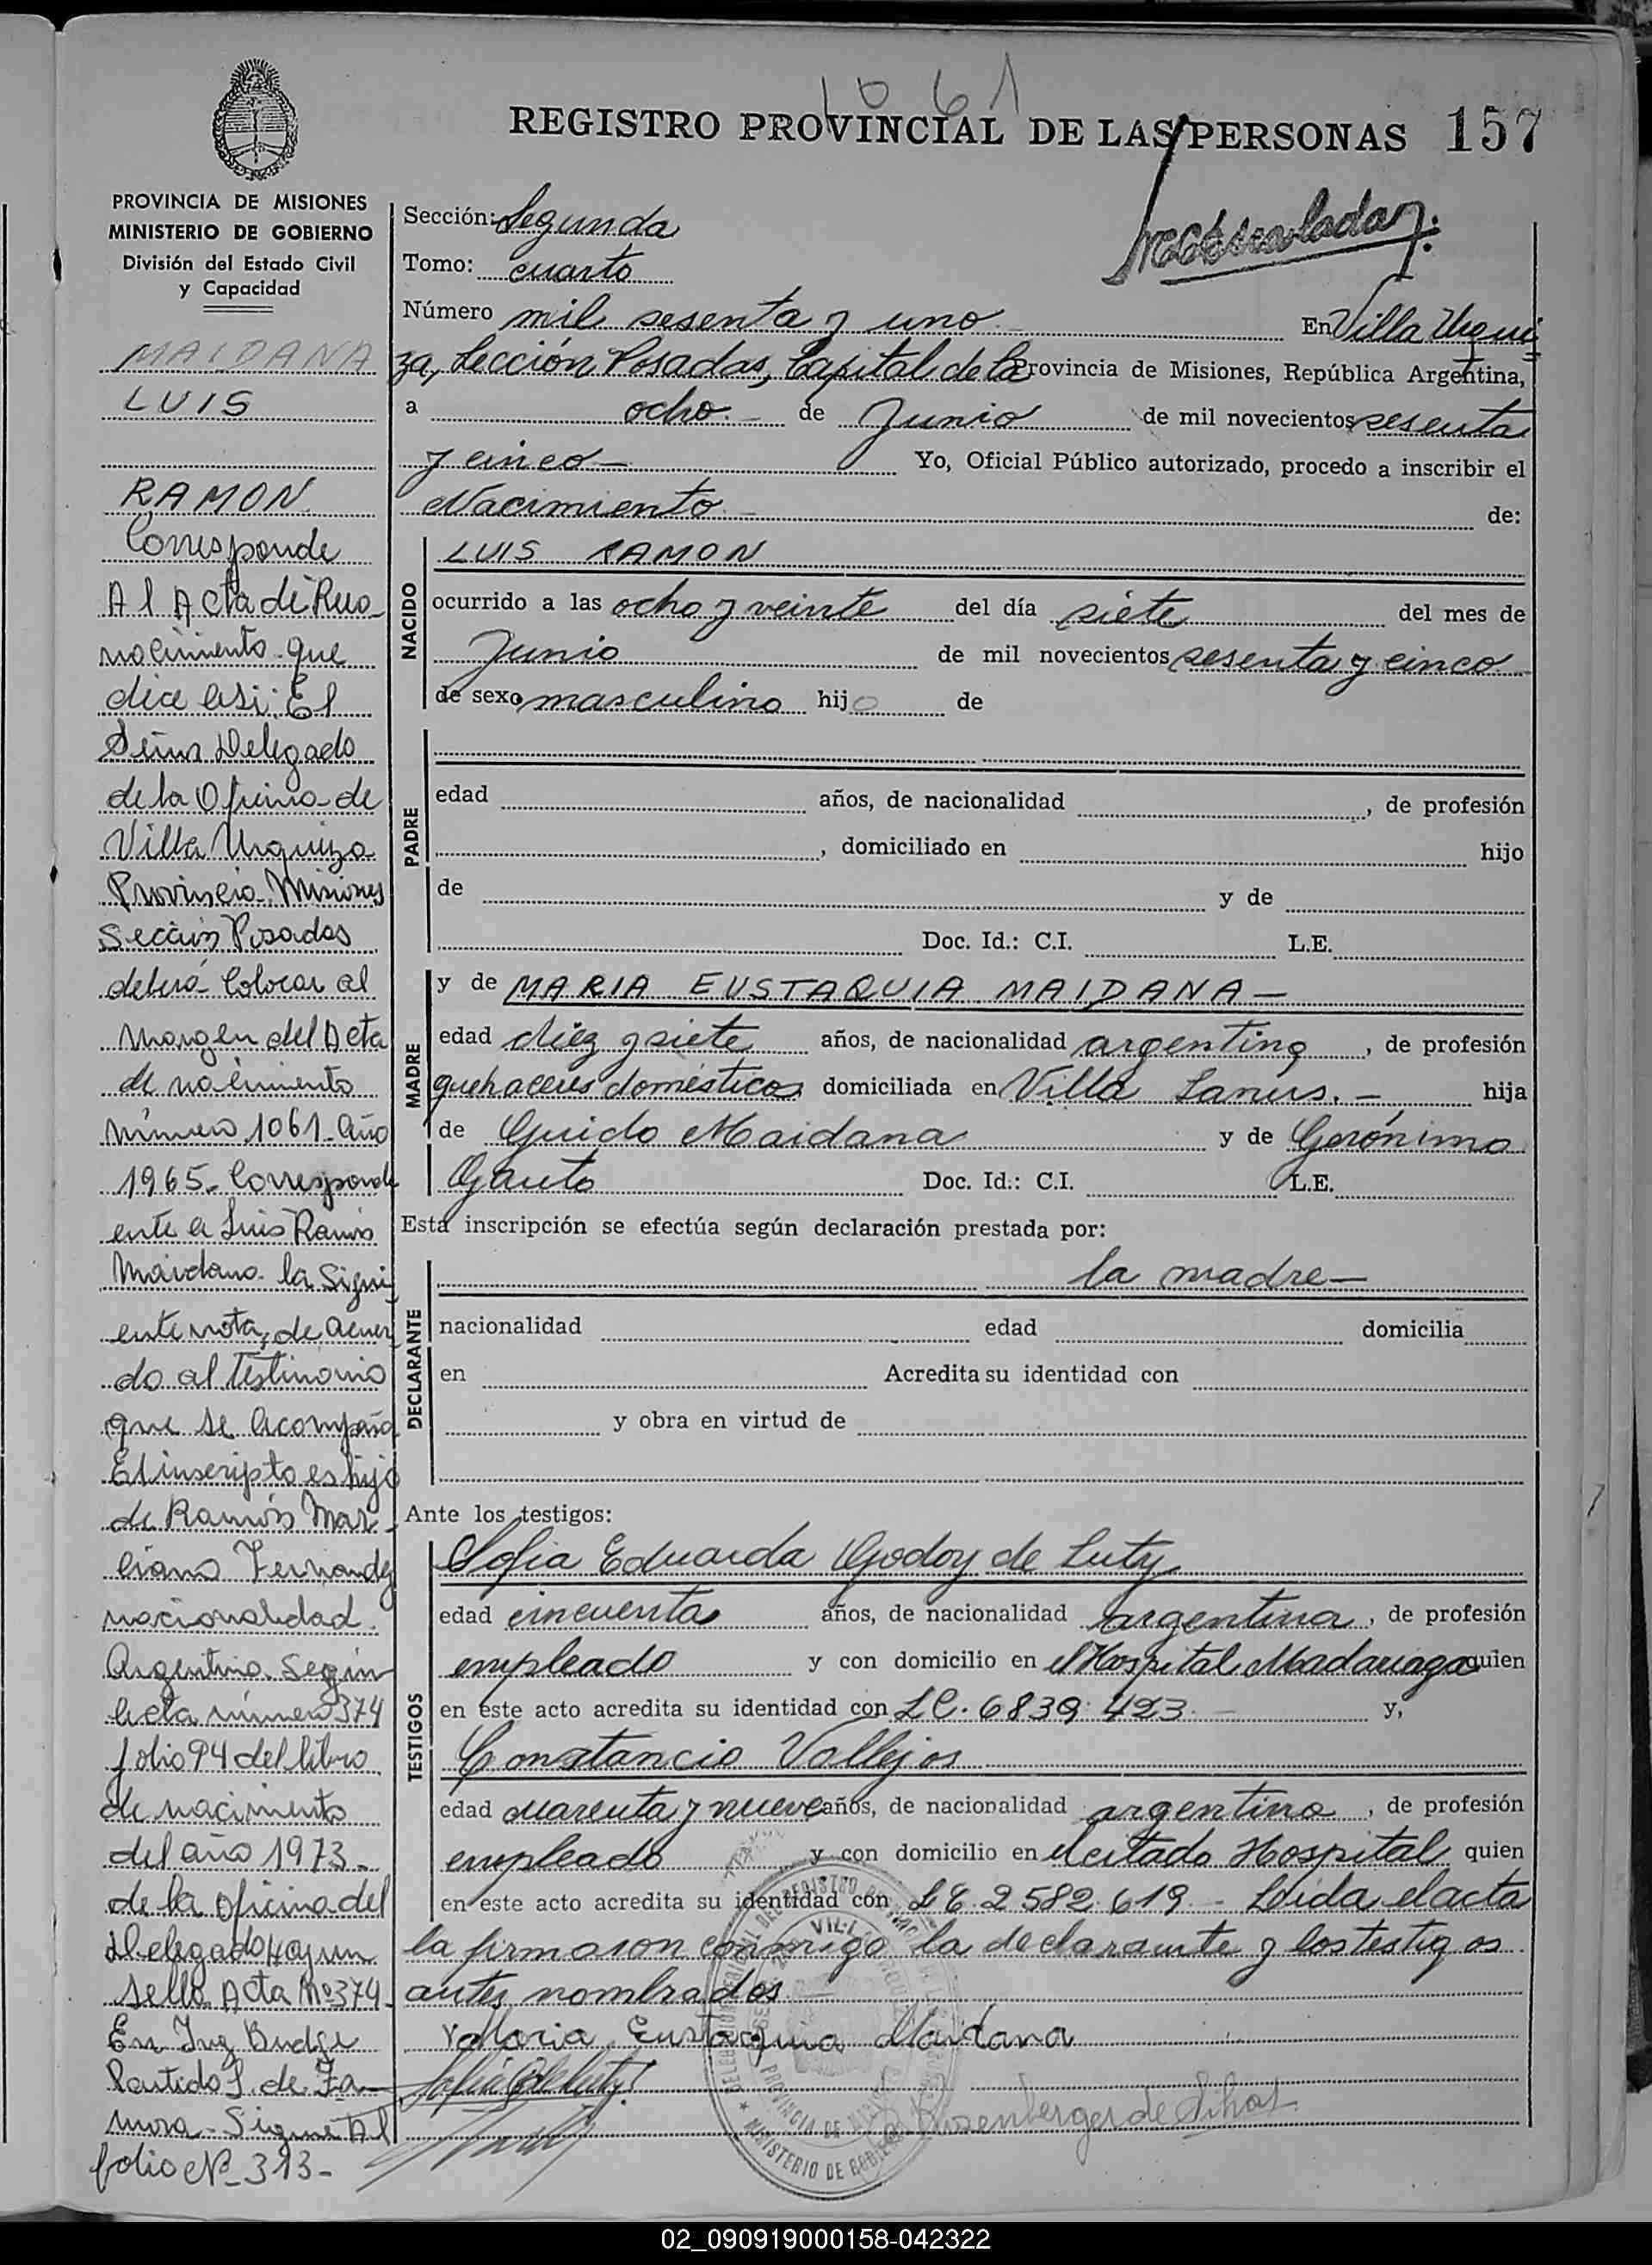 1061
REGISTRO PROVINCIAL DE LAS PERSONAS 157
PROVINCIA DE MISIONES
MINISTERIO DE GOBIERNO
División del Estado Civil
y Capacidad
MAIDANA
LUIS
RAMON
Corresponde
Al Acta de Reco-
nocimiento que
dice así: El
Señor Delegado
de la Oficina de
Villa Urquiza
Provincia Misiones
Sección Posadas
deberá Colocar al
Margen del Acta
de nacimiento
número 1061 Año
1965. Correspondi
ente a Luis Ramón
Maidana la Sigui
ente nota, de acuer
do al Testimonio
que se acompaña
El inscripto es hijo
de Ramón Mar-
ciano Fernandez
nacionalidad
Argentina Según
acta número 374
folio 94 del libro
de nacimiento
del año 1973
de la oficina del
Delegado Hay un
sello Acta Nº 374
En Ing Budge
Partido L. de Za-
mora - Sigue Al
folio Nº 313-
Sección: Segunda
Tomo: cuarto
Número mil sesenta y uno En Villa Urqui
za, Sección Posadas, Capital de la Provincia de Misiones, República Argentina,
a ocho.- de Junio de mil novecientos sesenta
y cinco- Yo, Oficial Público autorizado, procedo a inscribir el
Nacimiento de:
NACIDO
LUIS RAMON
ocurrido a las ocho y veinte del día siete del mes de
Junio de mil novecientos sesenta y cinco
de sexo masculino hijo de
PADRE
edad años, de nacionalidad , de profesión
, domiciliado en hijo
de y de
Doc. Id.: C.I. L.E.
MADRE
y de MARIA EUSTAQUIA MAIDANA-
edad diez y siete años, de nacionalidad argentina, de profesión
quehaceres domésticos domiciliada en Villa Lanús.- hija
de Guido Maidana y de Gerónima
Gauto Doc. Id.: C.I. L.E.
Esta inscripción se efectúa según declaración prestada por:
DECLARANTE
la madre-
nacionalidad edad domicilia
en Acredita su identidad con
y obra en virtud de
Ante los testigos:
TESTIGOS
Sofia Eduarda Godoy de Luty
edad cincuenta años, de nacionalidad argentina, de profesión
empleado y con domicilio en el Hospital Madariaga quien
en este acto acredita su identidad con LC. 6839.423.- y,
Constancio Vallejos
edad cuarenta y nueve años, de nacionalidad argentino, de profesión
empleado y con domicilio en el citado Hospital quien
en este acto acredita su identidad con LE 2582.619- Leida el acta
la firmaron conmigo la declarante y los testigos
antes nombrados
Maria Eustaquia Maidana
PROVINCIA DE
MINISTERIO DE GOBIERNO
02_090919000158-042322